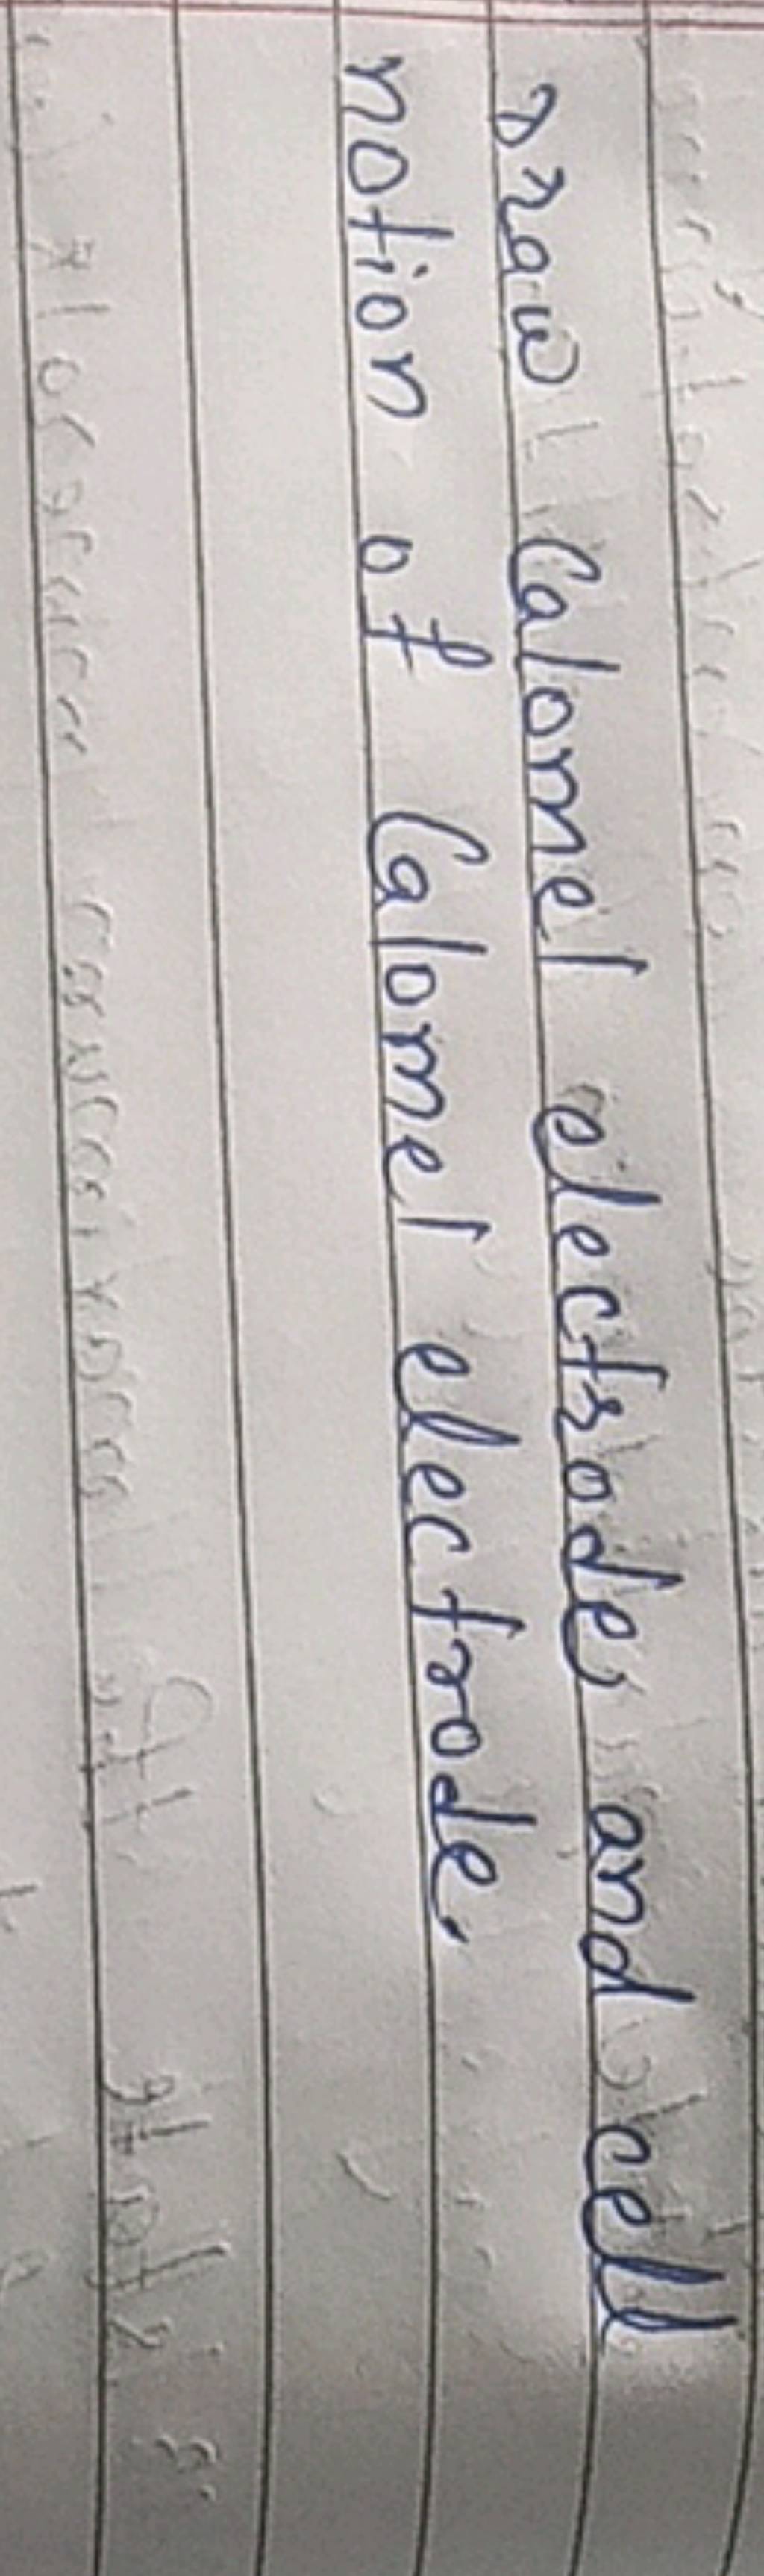 Draw Calomel electrode, and cell
notion of Calomel electrode.